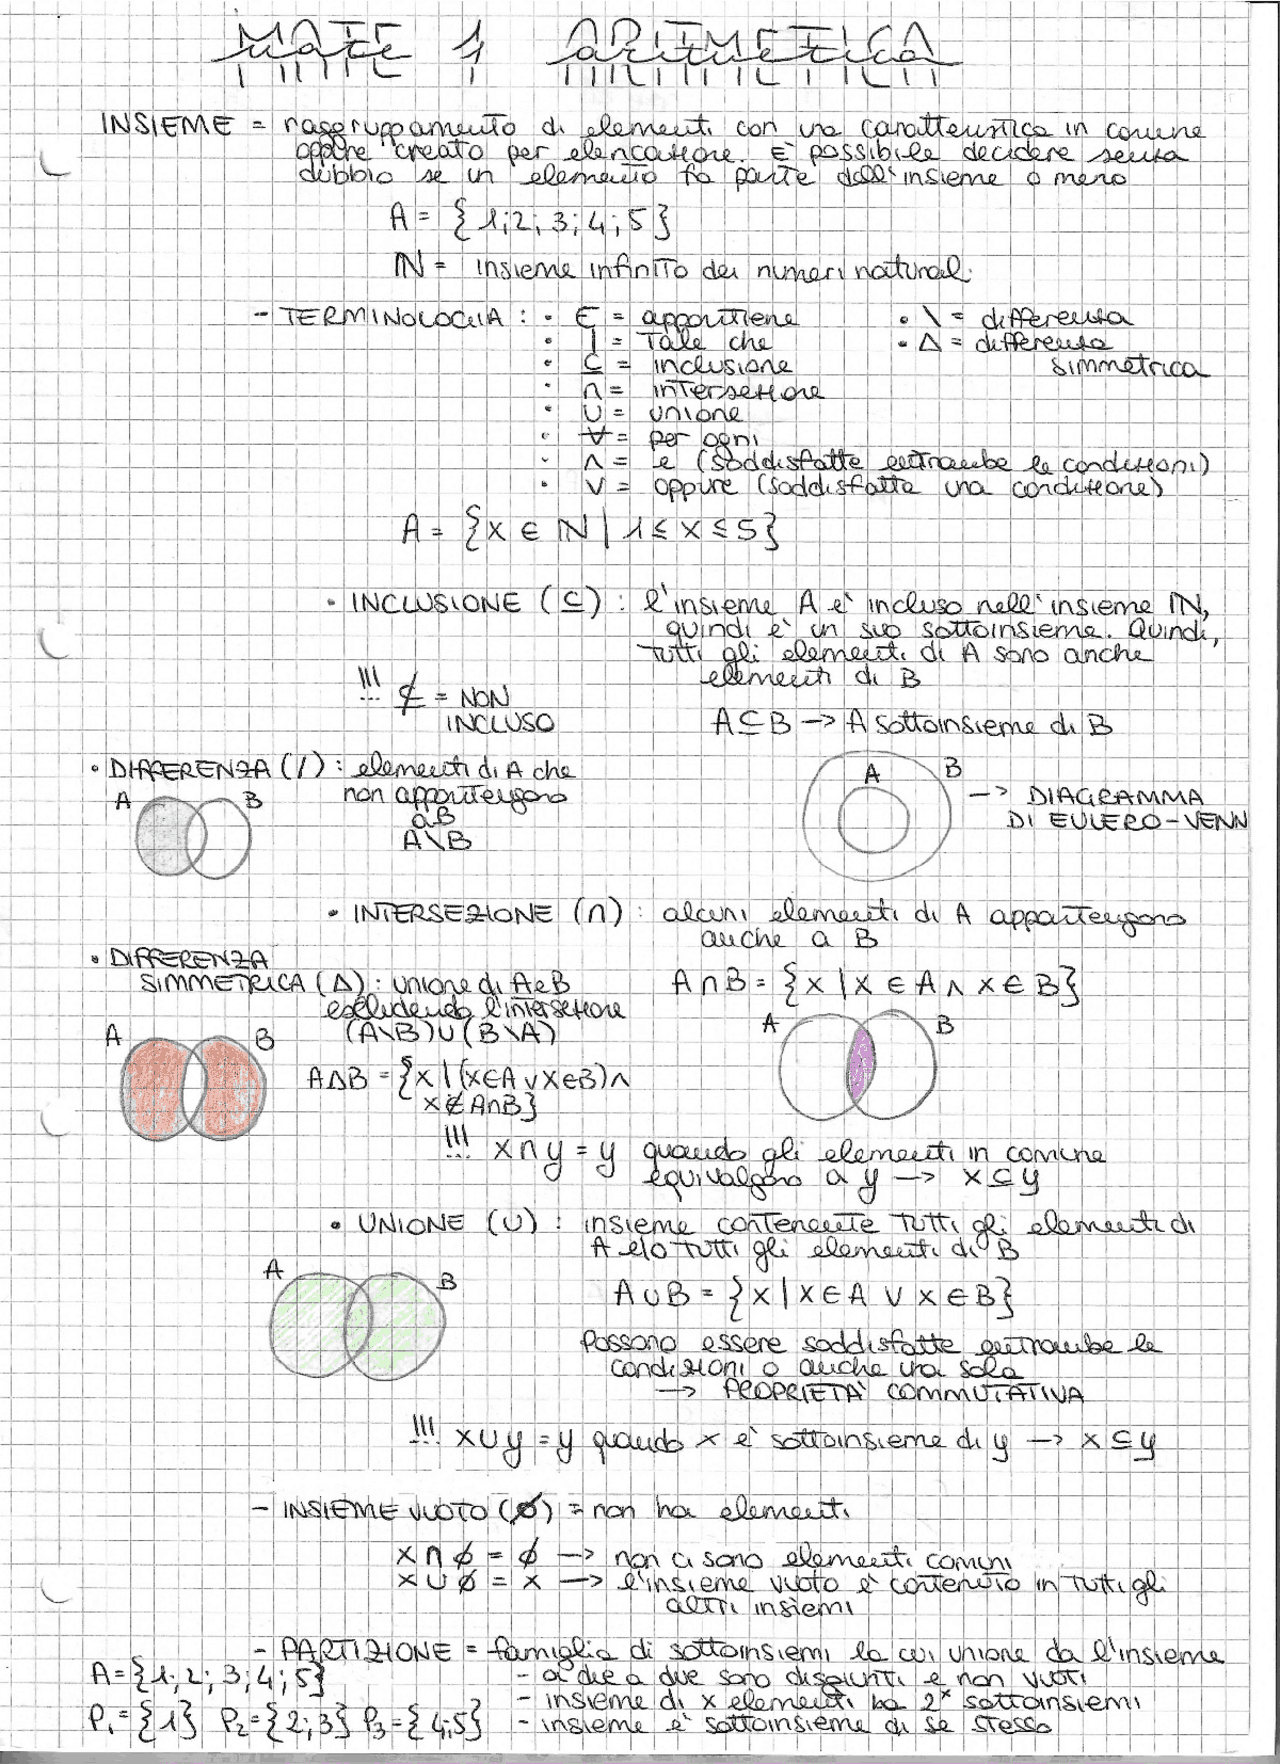 MATE 1 ARITMETICA
INSIEME = raggruppamento di elementi con una caratteristica in comune
oppure creato per elencazione. È possibile decidere senza
dubbio se un elemento fa parte dell'insieme o meno
A = { 1; 2; 3; 4; 5 }
ℕ = insieme infinito dei numeri naturali
- TERMINOLOGIA : • ∈ = appartiene • \ = differenza
• | = Tale che • Δ = differenza
simmetrica
• ⊆ = inclusione
∩ = intersezione
• ∪ = unione
• ∀ = per ogni
• ∧ = e (soddisfatte entrambe le condizioni)
• ∨ = oppure (soddisfatta una condizione)
A = {x ∈ ℕ | 1 ≤ x ≤ 5}
• INCLUSIONE (⊆) : l'insieme A è incluso nell'insieme ℕ,
quindi è un suo sottoinsieme. Quindi,
tutti gli elementi di A sono anche
elementi di B
!!! ⊄ = NON
INCLUSO
A⊆B → A sottoinsieme di B
• DIFFERENZA (/) : elementi di A che
non appartengono
a B
A\B
A B
A B
→ DIAGRAMMA
DI EULERO-VENN
• INTERSEZIONE (∩) : alcuni elementi di A appartengono
anche a B
A∩B = {x | x ∈ A ∧ x ∈ B}
A B
• DIFFERENZA
SIMMETRICA (Δ) : unione di A e B
escludendo l'intersezione
(A\B)∪(B\A)
A B
AΔB = {x | (x∈A ∨ x∈B) ∧
x ∉ A∩B}
!!! x∩y = y quando gli elementi in comune
equivalgono a y → x ⊆ y
• UNIONE (∪) : insieme contenente tutti gli elementi di
A e/o tutti gli elementi di B
A B
A∪B = {x | x∈A ∨ x∈B}
Possono essere soddisfatte entrambe le
condizioni o anche una sola
→ PROPRIETÀ COMMUTATIVA
!!! x∪y = y quando x è sottoinsieme di y → x ⊆ y
- INSIEME VUOTO (∅) = non ha elementi
x ∩ ∅ = ∅ → non ci sono elementi comuni
x ∪ ∅ = x → l'insieme vuoto è contenuto in tutti gli
altri insiemi
- PARTIZIONE = famiglia di sottoinsiemi la cui unione da l'insieme
A = {1; 2; 3; 4; 5} - a due a due sono disgiunti e non vuoti
- insieme di x elementi ha 2ˣ sottoinsiemi
P₁ = {1} P₂ = {2; 3} P₃ = {4; 5} - insieme è sottoinsieme di se stesso